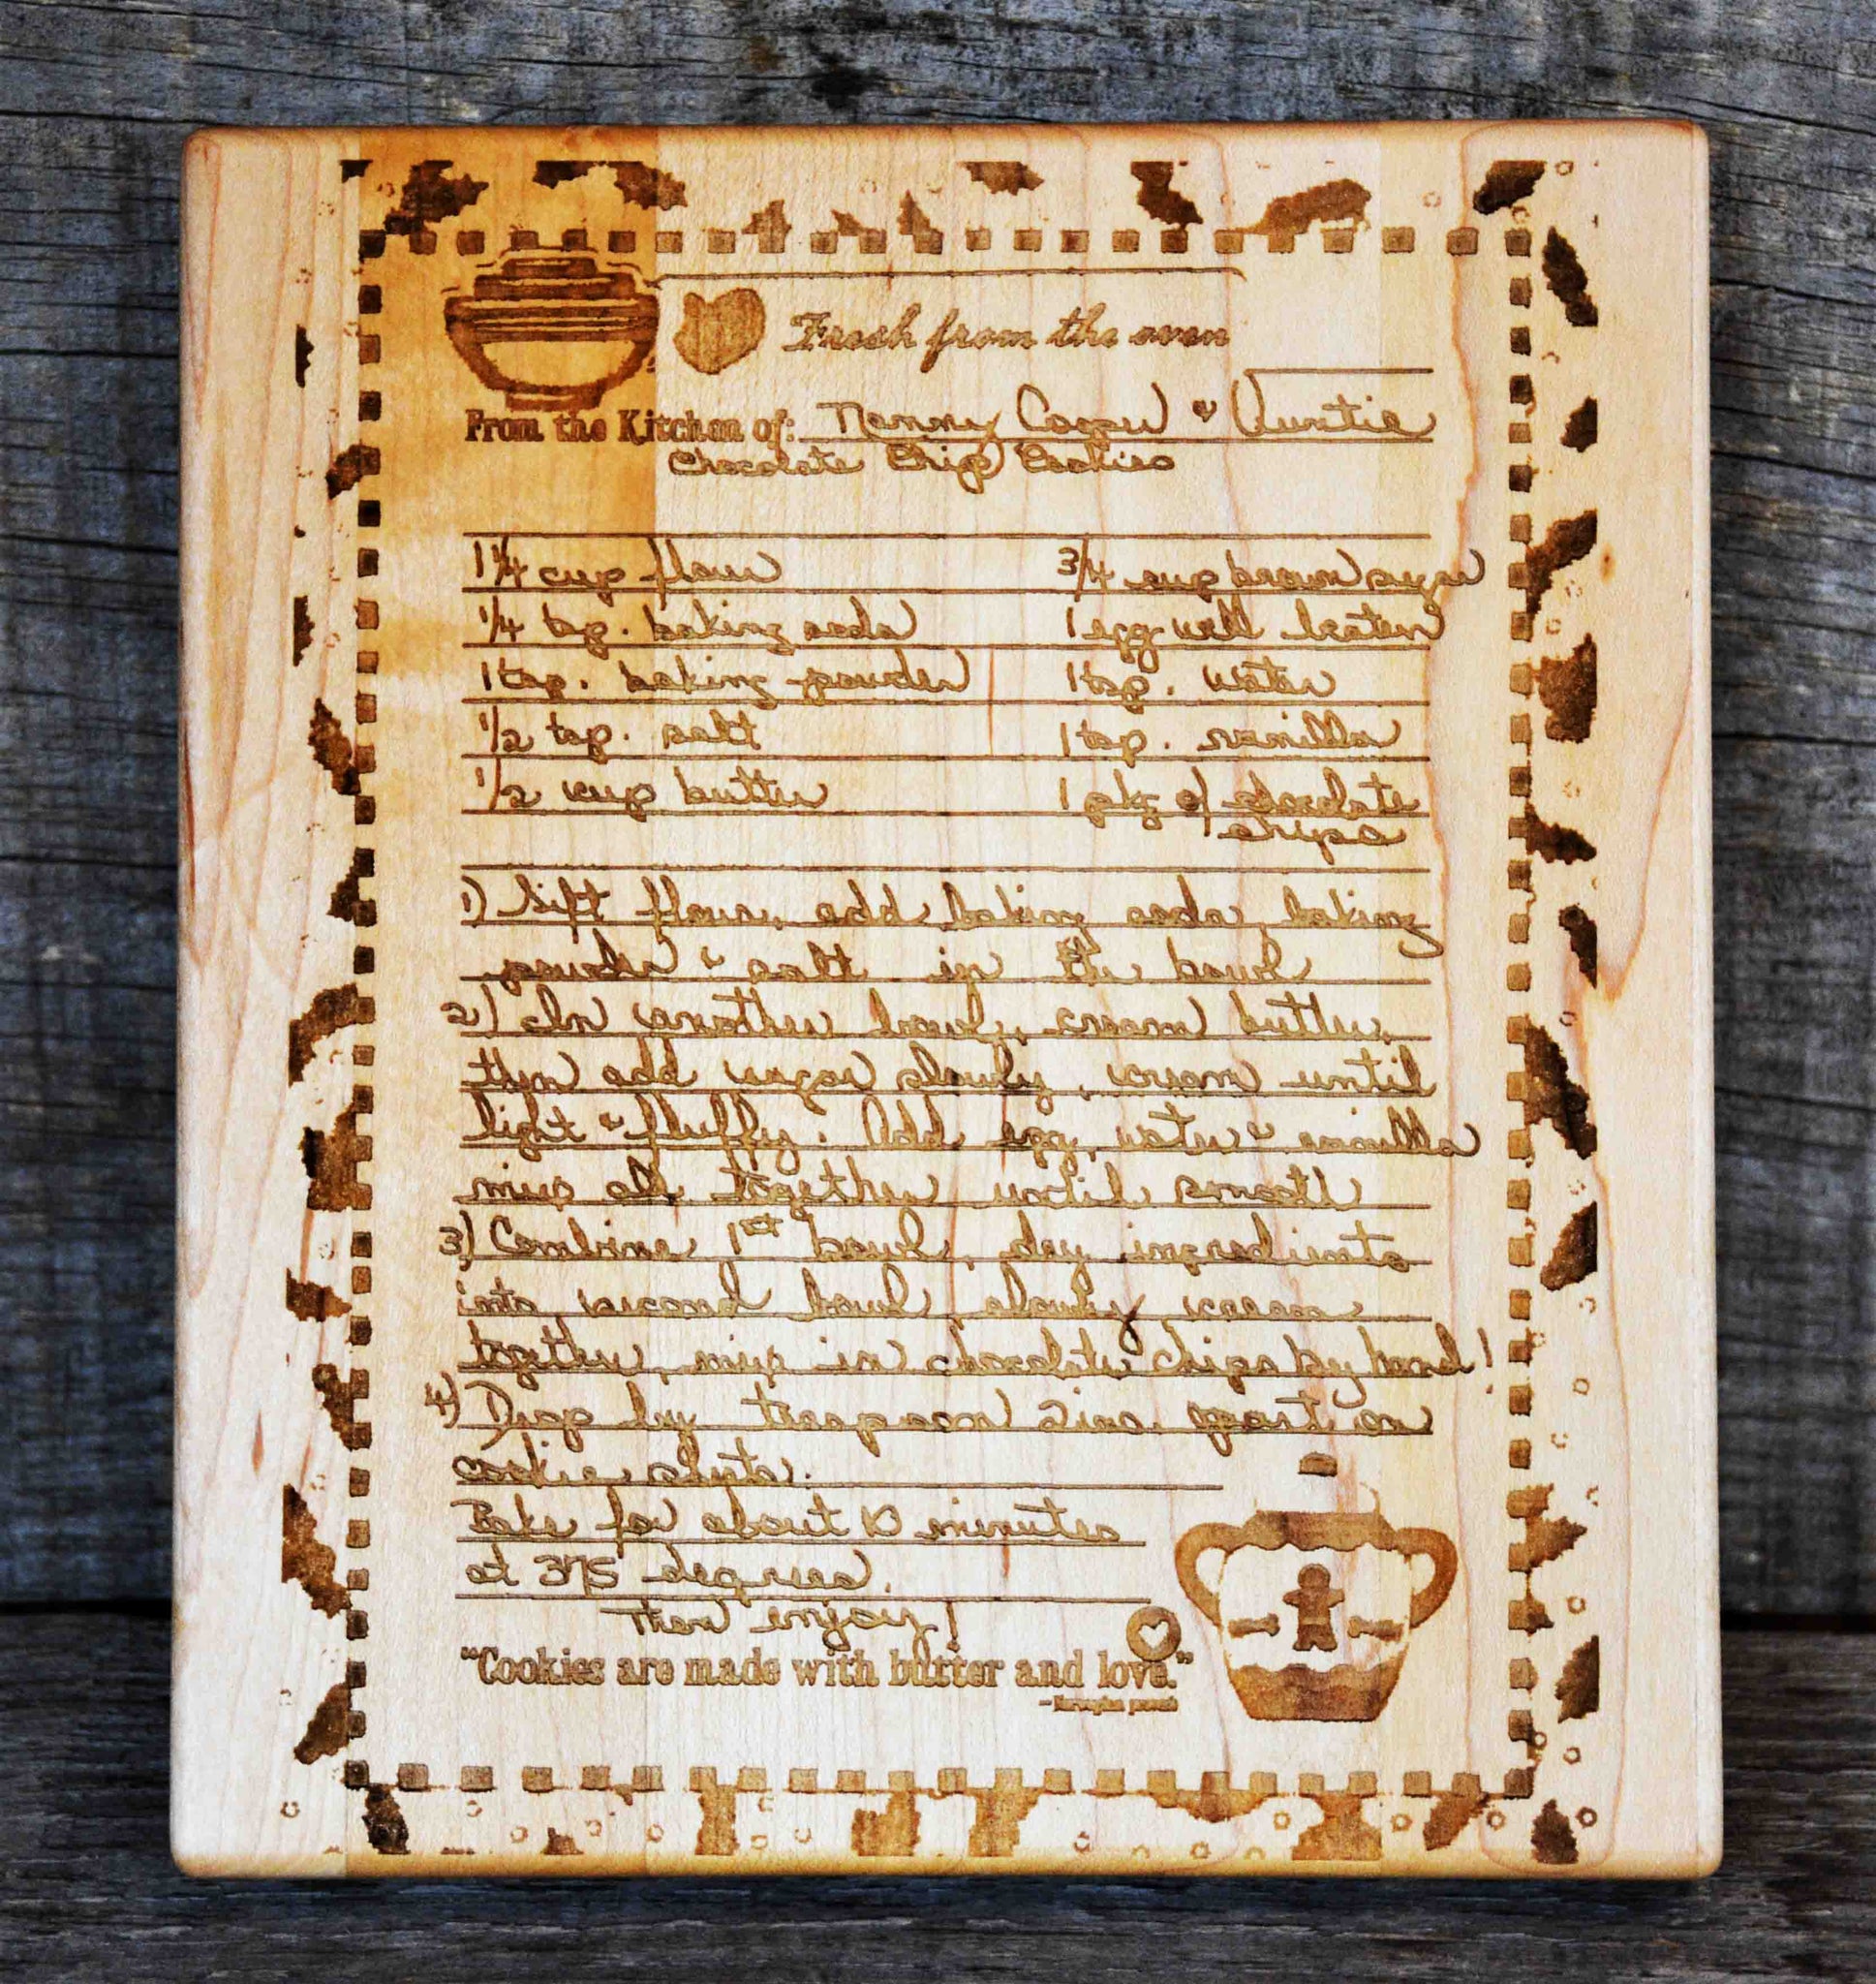 Fresh from the oven
From the Kitchen of: Nemmy ♥ Auntie
Chocolate Chip Cookies
1 1/4 cup flour 3/4 cup brown sugar
1/4 tsp. baking soda 1 egg well beaten
1 tsp. baking powder 1 tsp. water
1/2 tsp. salt 1 tsp. vanilla
1/2 cup butter 1 pkg of chocolate
chips
1) Sift flour, add baking soda, baking
powder & salt in the bowl
2) In another bowl, cream butter,
then add sugar slowly, cream until
light & fluffy. Add egg, water & vanilla
mix all together until smooth
3) Combine 1st bowl, dry ingredients
into second bowl, slowly cream
together, mix in chocolate chips by hand!
4) Drop by teaspoon 2 ins. apart on
cookie sheets.
Bake for about 10 minutes
at 375 degrees.
Then enjoy!
"Cookies are made with butter and love."
- Norwegian proverb